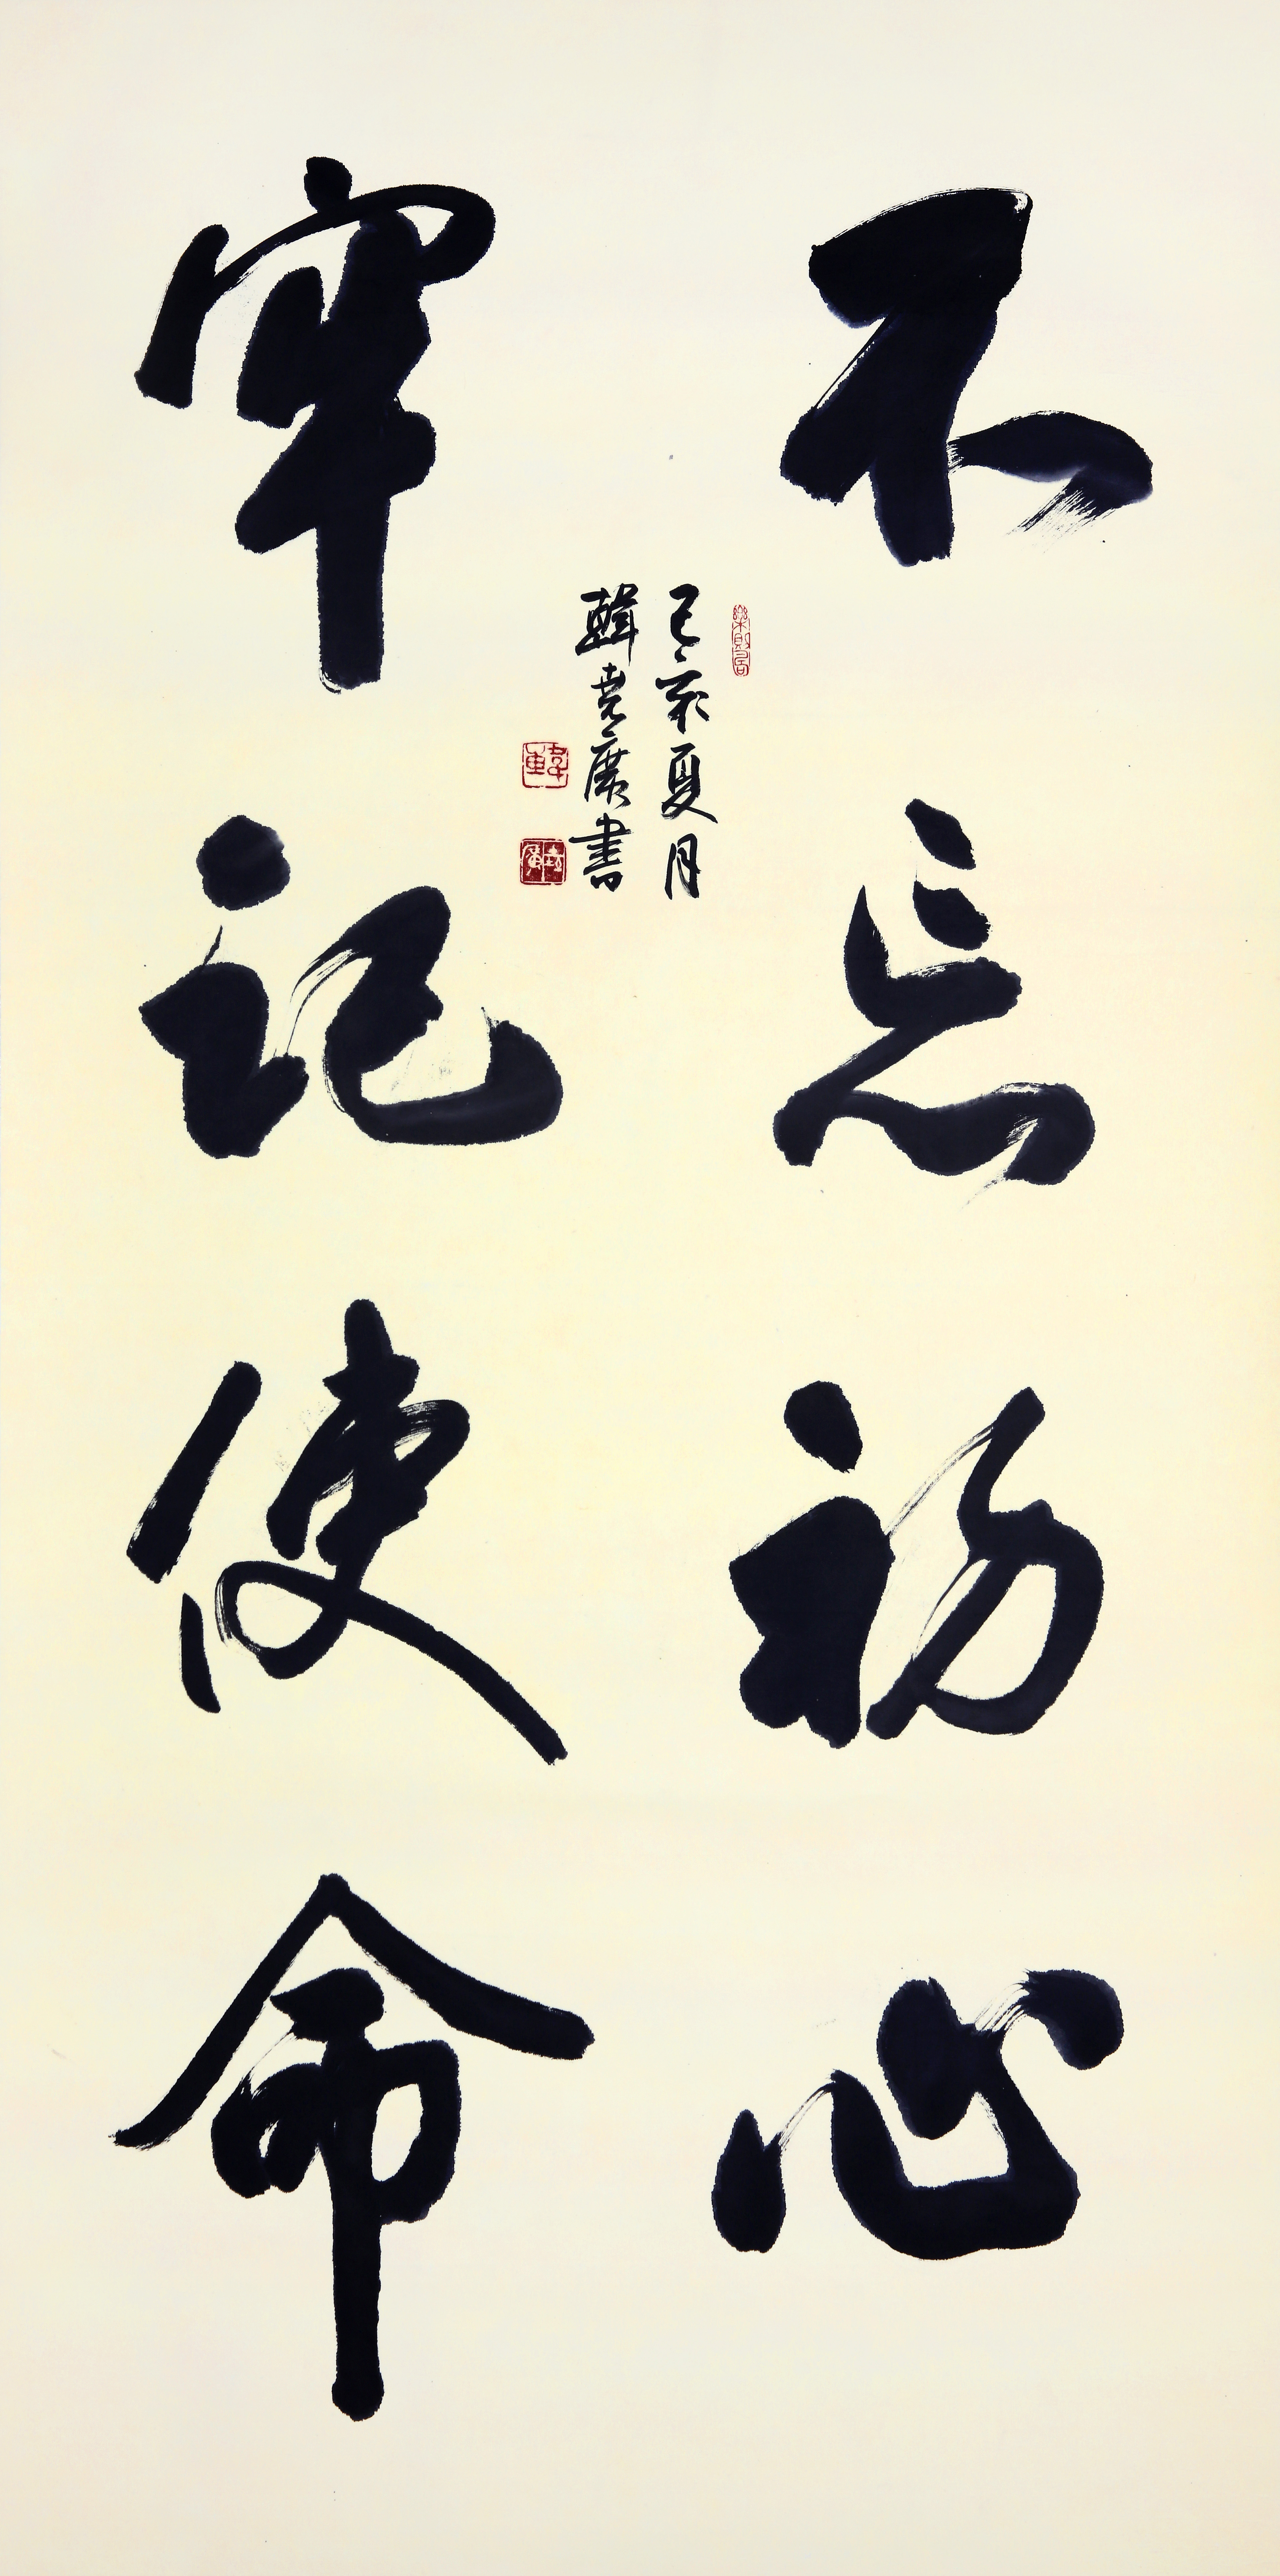 不忘初心
牢记使命
己亥夏月
韓尧广書